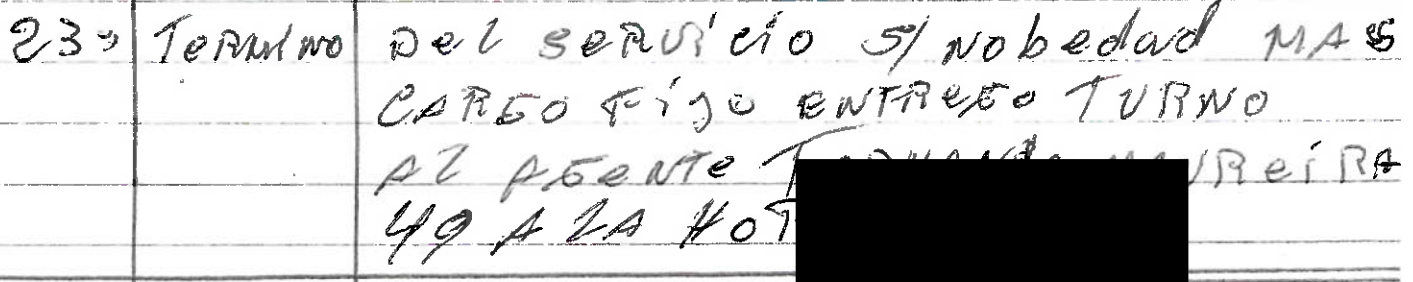 23⁰⁰ TERMINO DEL SERVICIO S/NOBEDAD MAS
CARGO FIJO ENTREGO TURNO
AL AGENTE
49 A LA